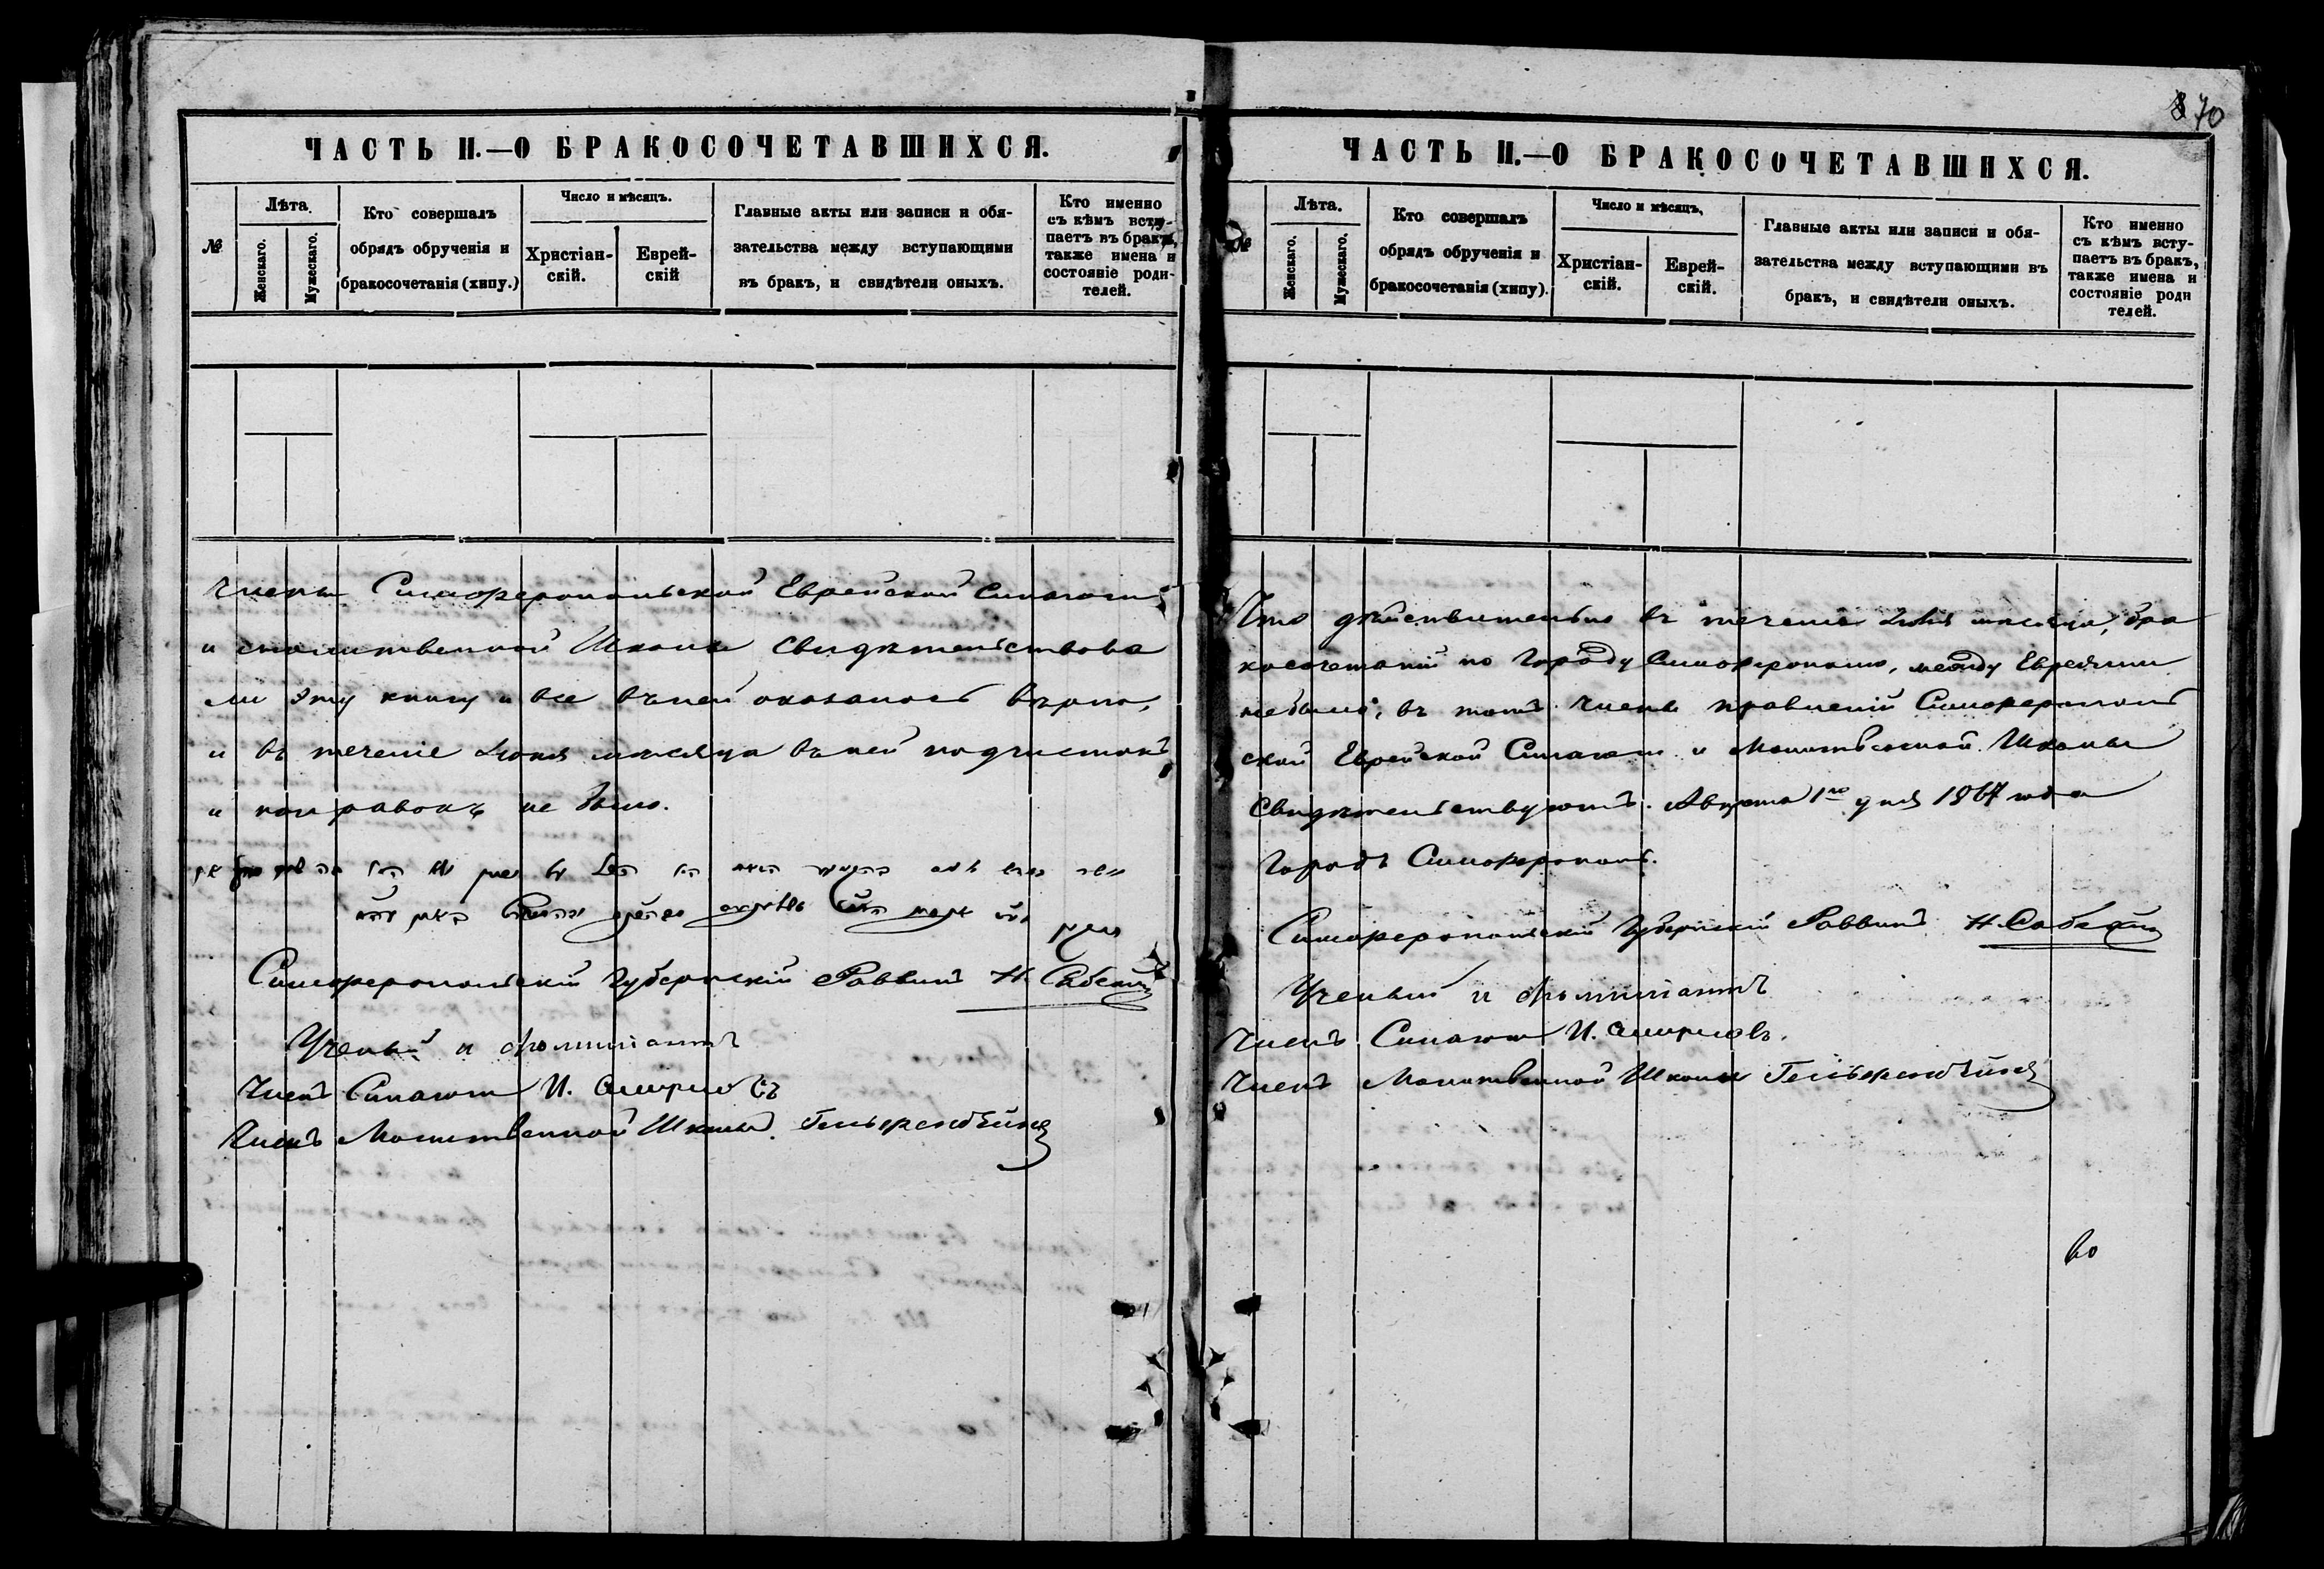 ЧАСТЬ II.—О БРАКОСОЧЕТАВШИХСЯ.
№
Лѣта.
Женскаго.
Мужескаго.
Кто совершалъ
обрядъ обрученія и
бракосочетанія (хипу.)
Число и мѣсяцъ.
Христіан-
скій.
Еврей-
скій
Главные акты или записи и обя-
зательства между вступающими
въ бракъ, и свидѣтели оныхъ.
Кто именно
съ кѣмъ всту-
паетъ въ бракъ,
также имена и
состояніе роди-
телей.
Члены Симферопольской Еврейской Синагоги
и молитвенной Школы свидѣтельствова
ли эту книгу и все въ ней оказалось вѣрно,
и въ теченіе Іюля мѣсяца въ ней подчистокъ
и поправокъ не было.
Симферопольскій Губернскій Раввинъ Н.
Ученый и
Членъ Синагоги И. Смирновъ
Членъ Молитвенной Школы
870
ЧАСТЬ II.—О БРАКОСОЧЕТАВШИХСЯ.
Лѣта.
Женскаго.
Мужескаго.
Кто совершалъ
обрядъ обрученія и
бракосочетанія (хипу).
Число и мѣсяцъ,
Христіан-
скій.
Еврей-
скій.
Главные акты или записи и обя-
зательства между вступающими въ
бракъ, и свидѣтели оныхъ.
Кто именно
съ кѣмъ всту-
паетъ въ бракъ,
также имена и
состояніе роди
телей.
Что дѣйствительно въ теченіе Іюля мѣсяца, бра
косочетаній по Городу Симферополю, между Евреями
небыло, въ томъ Члены правленій Симферополь
ской Еврейской Синагоги и Молитвенной Школы
Свидѣтельствуютъ. Августа 1го дня 1867 года
Городъ Симферополь.
Симферопольскій Губернскій Раввинъ Н.
Ученый и
Членъ Синагоги И. Смирновъ.
Членъ Молитвенной Школы
во